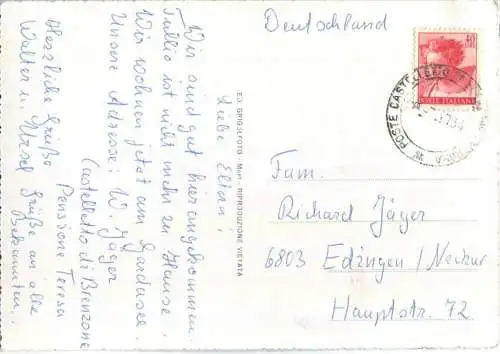 Liebe Eltern,
Wir sind gut hier angekommen.
Tullio ist nicht mehr zu Hause.
Wir wohnen jetzt am Gardasee.
Unsere Adresse: W. Jäger
Castelletto di Brenzone
Pensione Teresa
Herzliche Grüße
Walter u.
Grüße an alle
Bekannten.
ED. GRIGJEFOTO - RIPRODUZIONE VIETATA
Deutschland
40
POSTE ITALIANE
POSTE CASTELLETTO
Fam.
Richard Jäger
6803 Edingen/Neckar
Hauptstr. 72